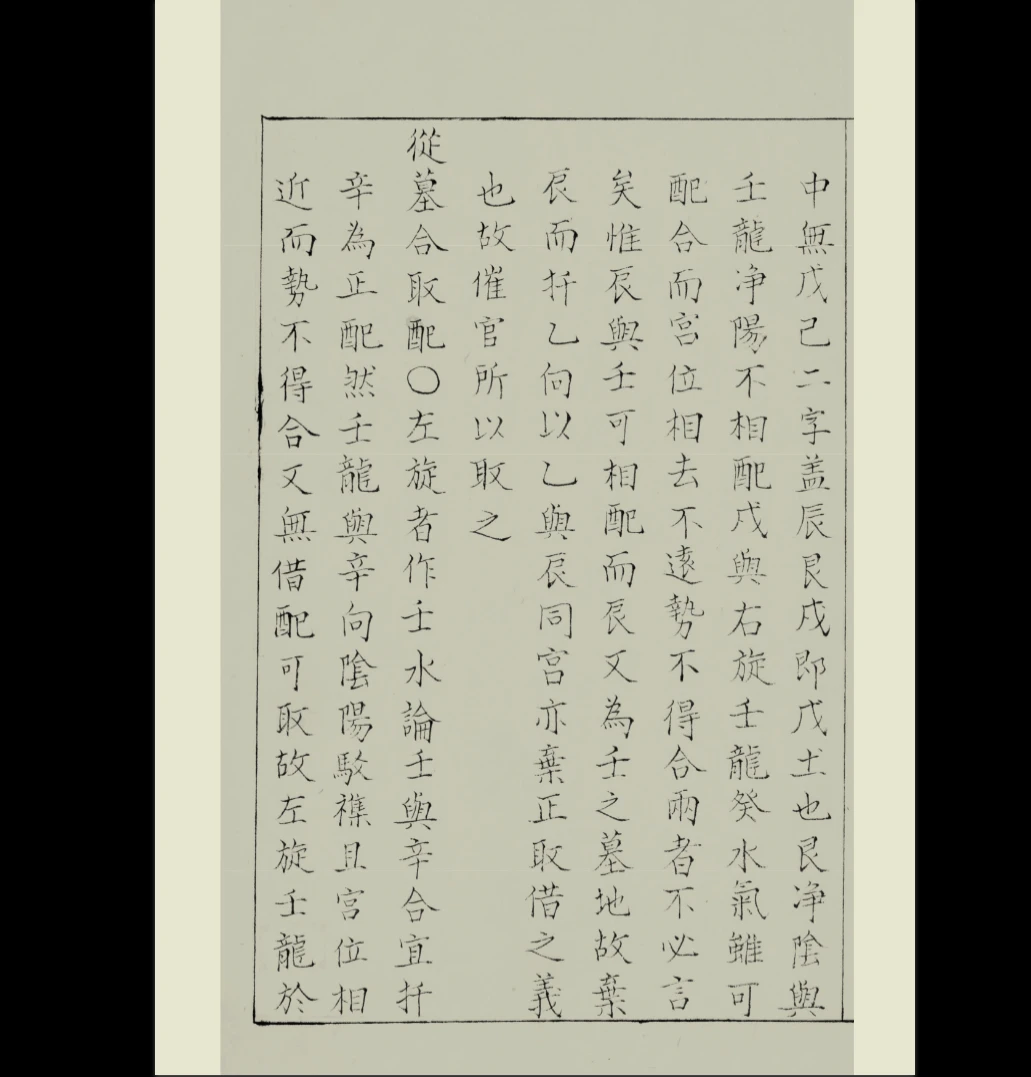 中無戊己二字盖辰艮戌即戊土也艮净陰與
壬龍净陽不相配戌與右旋壬龍癸水氣雖可
配合而宮位相去不遠勢不得合兩者不必言
矣惟辰與壬可相配而辰又為壬之墓地故棄
辰而扦乙向以乙與辰同宮亦棄正取借之義
也故催官所以取之
從墓合取配〇左旋者作壬水論壬與辛合宜扦
辛為正配然壬龍與辛向陰陽駁襍且宮位相
近而勢不得合又無借配可取故左旋壬龍於